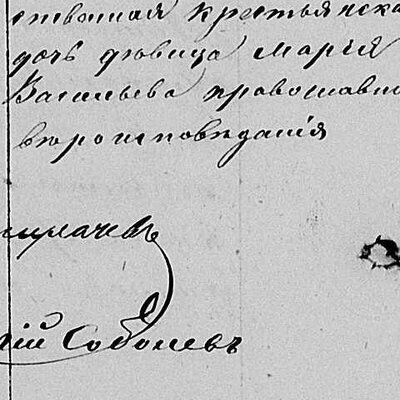 ственная крестьянска
дочь дѣвица Марія
Васильева православна
вѣроисповѣданія
ій Соболевъ